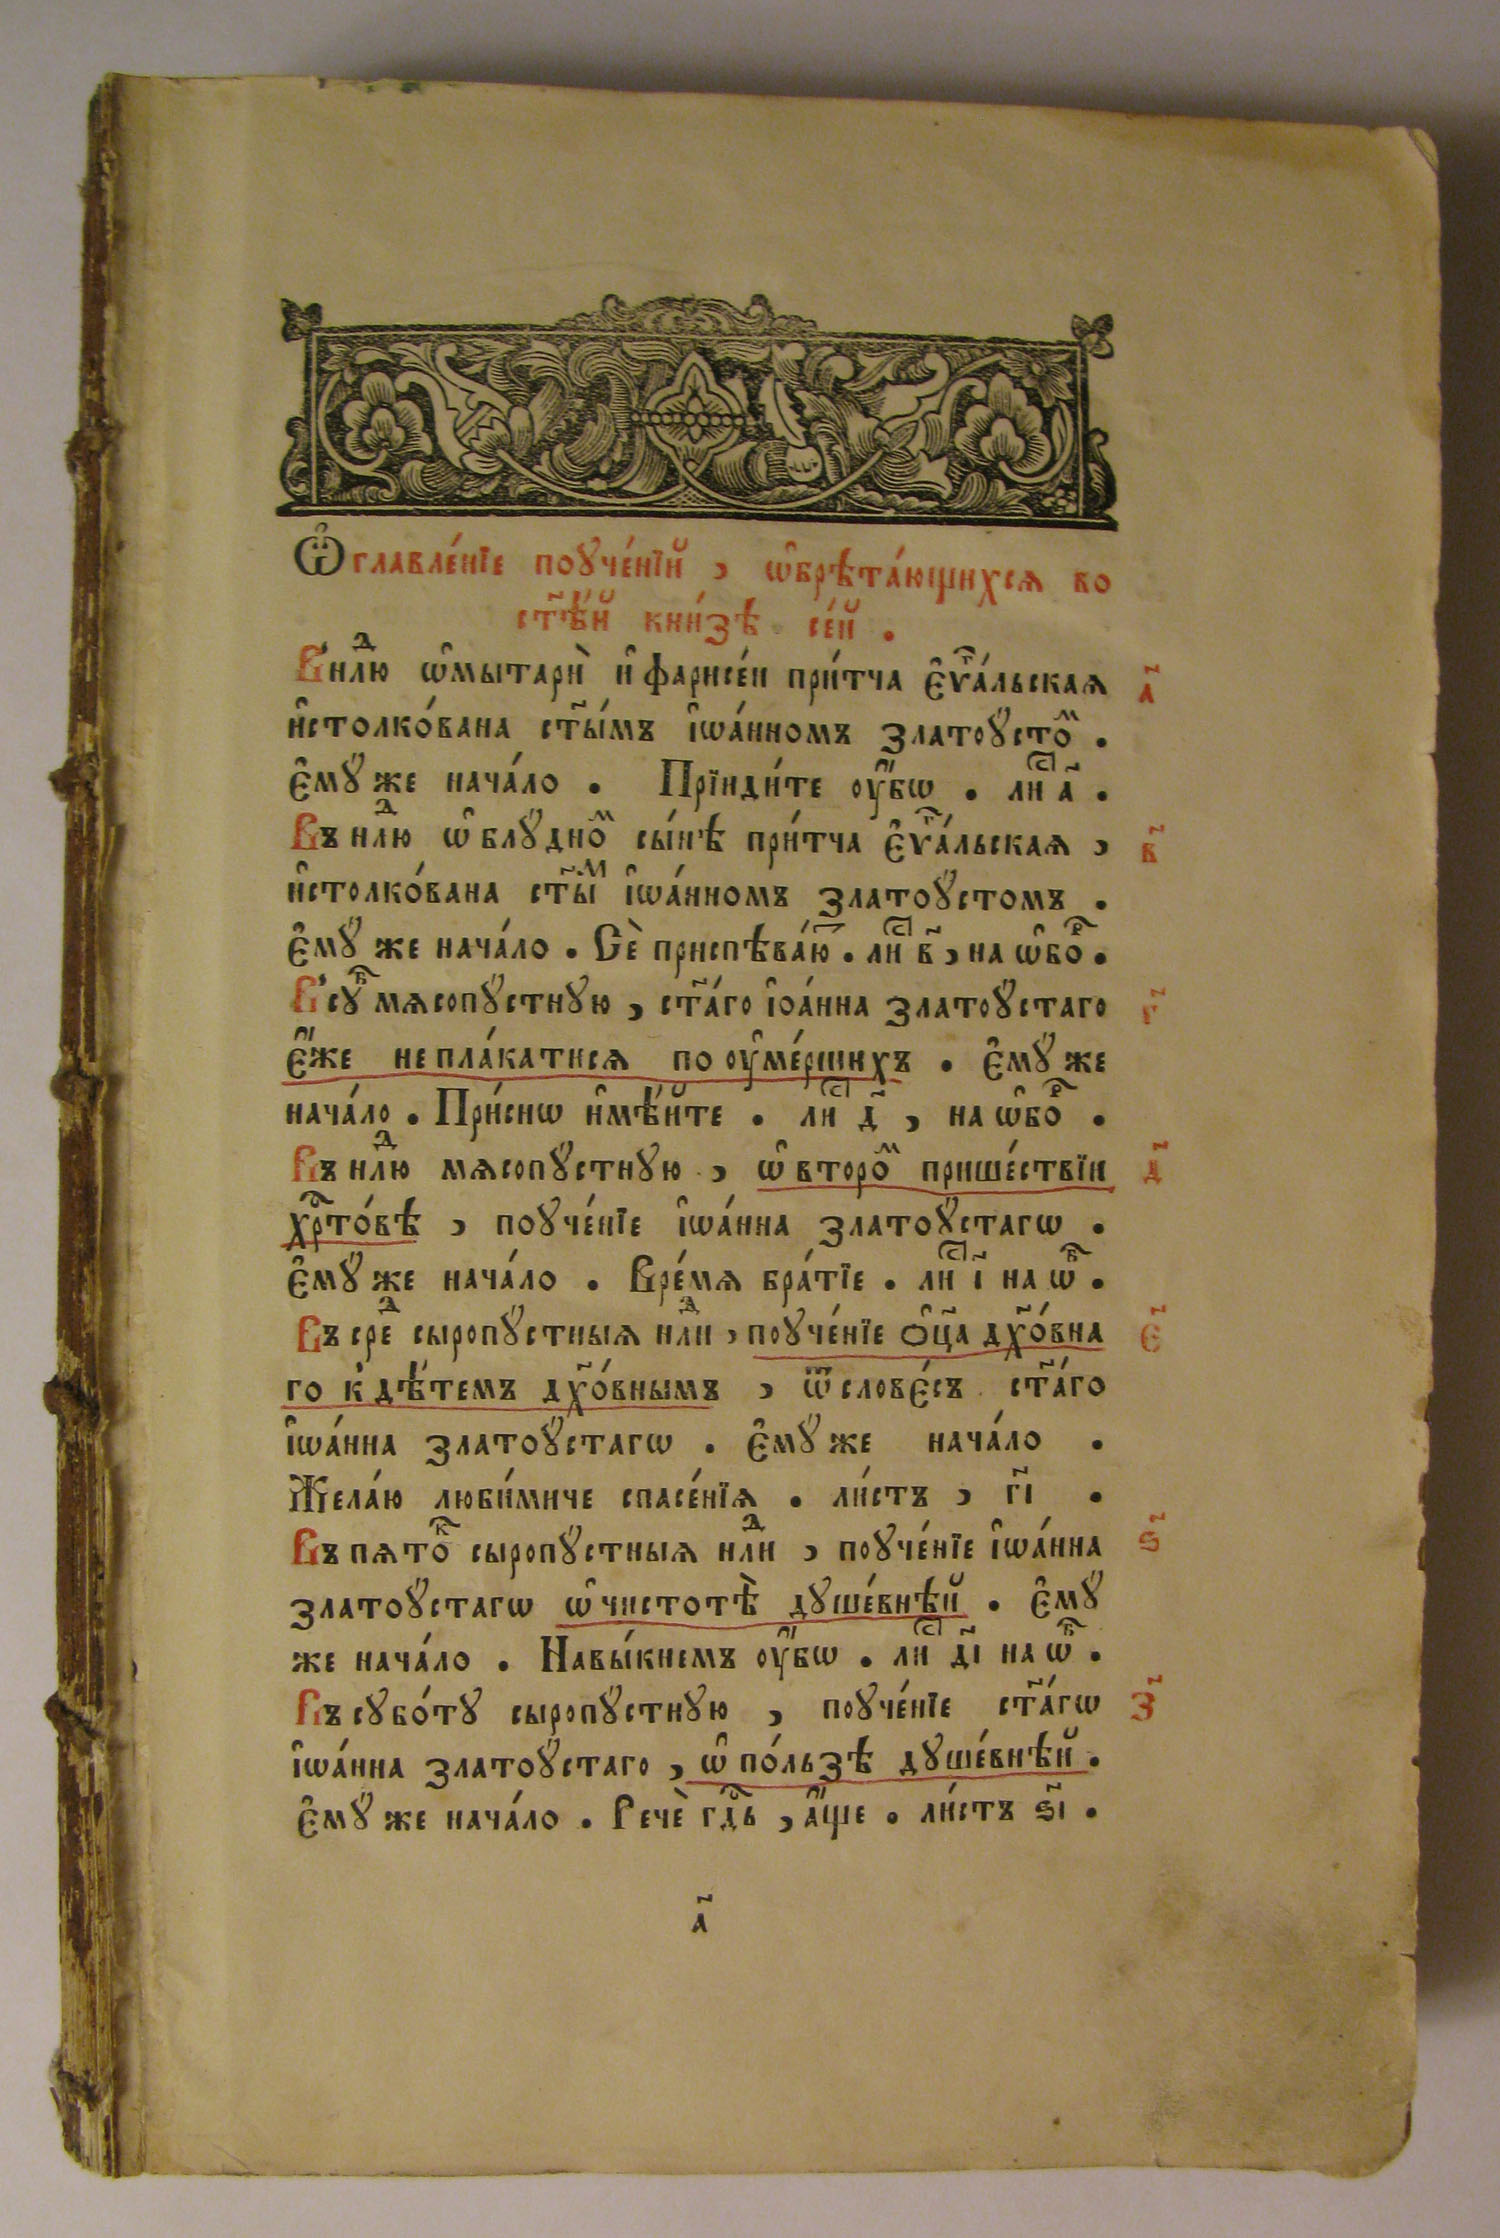 Ѡ҆главле́нїе поꙋче́нїй , ѡ҆брѣта́ющихсѧ во
ст҃ѣ́й кни́зѣ се́й .
В̾нлⷣю ѡ҆мытарѝ и҆ фарисе́и при́тча є҆ѵⷢ҇а́льскаѧ а҃
и҆столко́вана ст҃ы́мъ і҆ѡа́нномъ златоꙋ́стоⷨ .
є҆мꙋ́ же нача́ло . Прїиди́те оу҆́бѡ . лиⷭ҇ а҃ .
Въ нлⷣю ѡ҆ блꙋ́дноⷨ сы́нѣ при́тча є҆ѵⷢ҇а́льскаѧ , в҃
и҆столко́вана ст҃ыⷨ і҆ѡа́нномъ златоꙋ́стомъ .
є҆мꙋ́ же нача́ло . Сѐ приспѣва́ю . лиⷭ҇ в҃ , на ѡ҆боⷬ҇ .
В̾сꙋⷠ҇ мѧсопꙋ́стнꙋю , ст҃а́го і҆оа́нна златоꙋ́стаго г҃
є҆́же непла́катисѧ по оу҆ме́ршихъ . є҆мꙋ́ же
нача́ло . При́снѡ и҆мѣ́йте . лиⷭ҇ д҃ , на ѡ҆боⷬ҇ .
Въ нлⷣю мѧсопꙋ́стнꙋю , ѡ҆ второⷨ прише́ствїи д҃
хрⷭ҇то́вѣ , поꙋче́нїе і҆ѡа́нна златоꙋ́стагѡ .
є҆мꙋ́ же нача́ло . Вре́мѧ бра́тїе . лиⷭ҇ і҃ на ѡ҆ⷠ҇ .
Въ среⷣ сыропꙋ́стныѧ нлⷣи , поꙋче́нїе ѻ҆ц҃а дх҃о́вна є҃
го к̾ дѣ́темъ дх҃о́внымъ , ѿ слове́съ ст҃а́го
і҆ѡа́нна златоꙋ́стагѡ . є҆мꙋ́ же нача́ло .
Жела́ю люби́миче спасе́нїѧ . ли́стъ , г҃і .
Въ пѧтоⷦ҇ сыропꙋ́стныѧ нлⷣи , поꙋче́нїе і҆ѡа́нна ѕ҃
златоꙋ́стагѡ ѡ҆ чистотѣ̀ дꙋше́внѣй . є҆мꙋ́
же нача́ло . Навы́кнемъ оу҆́бѡ . лиⷭ҇ д҃і на ѡ҆ⷠ҇ .
Въ сꙋбо́тꙋ сыропꙋ́стнꙋю , поꙋче́нїе ст҃а́гѡ з҃
і҆ѡа́нна златоꙋ́стаго , ѡ҆ по́льзѣ дꙋше́внѣй .
є҆мꙋ́ же нача́ло . Речѐ гдⷭ҇ь , а҆́ще . ли́стъ ѕ҃і .
а҃